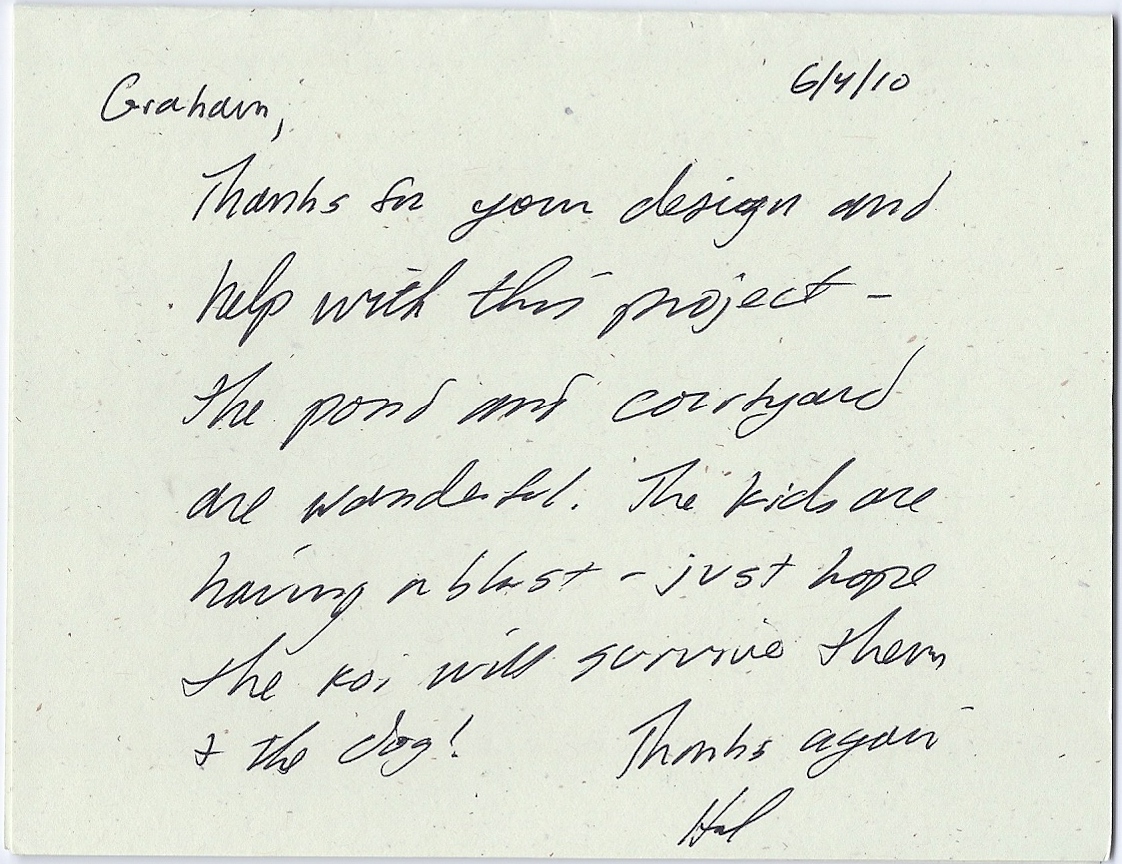 6/4/10
Graham,
Thanks for your design and
help with this project -
the pond and courtyard
are wonderful. The kids are
having a blast - just hope
the koi will survive them
& the dog! Thanks again
Hal